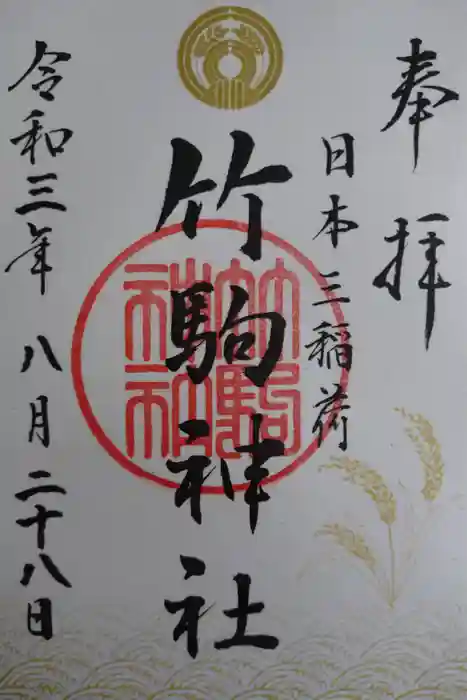 奉拝
日本三稲荷
竹駒神社
竹駒
神社
令和三年 八月二十八日